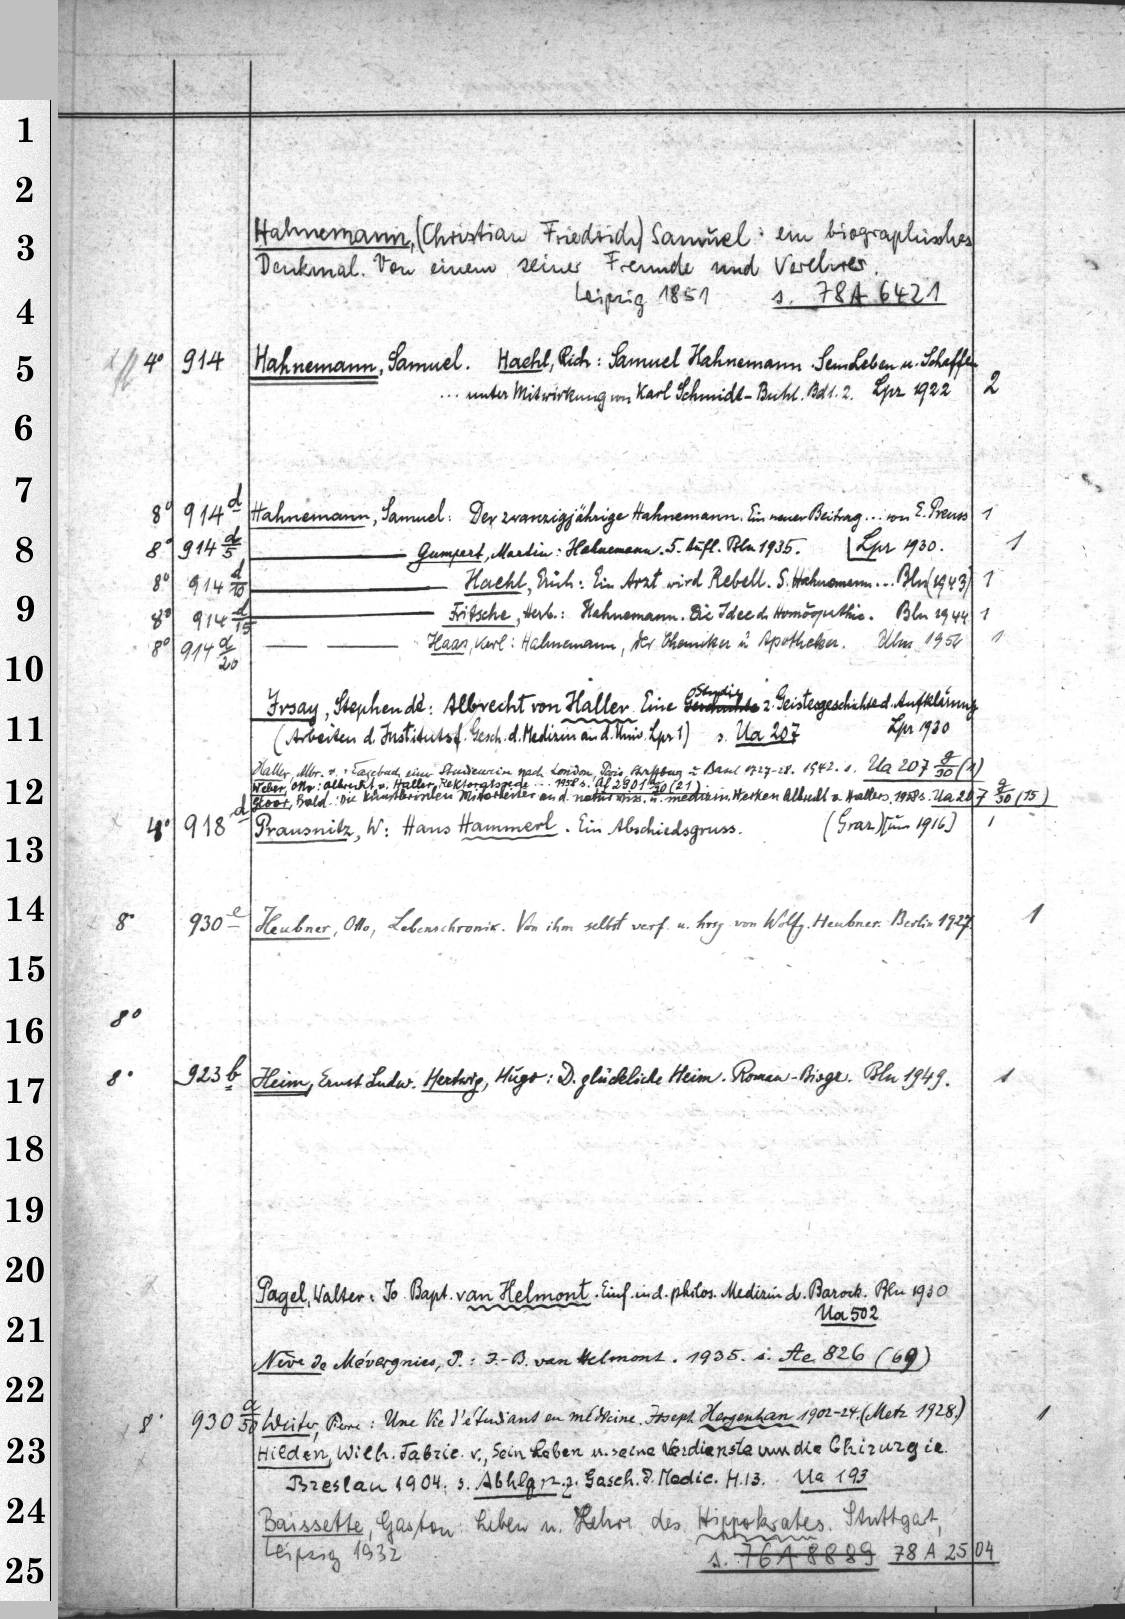 1
2
3
Hahnemann, (Christian Friedrich) Samuel: ein biographisches
Denkmal. Von einem seiner Freunde und Verehrer.
4
Leipzig 1851 s. 78 A 6421
5
4° 914 Hahnemann, Samuel. Haehl, Rich: Samuel Hahnemann. Sein Leben u. Schaffen
... unter Mitwirkung von Karl Schmidt-Buhl. Bd 1. 2. Lpz 1922 2
6
7
8° 914 d Hahnemann, Samuel: Der zwanzigjährige Hahnemann. Ein neuer Beitrag ... von E. Preuss 1
8
8° 914 d/5 Gumpert, Martin: Hahnemann. 5. Aufl. Bln 1935. Lpz 1930. 1
8° 914 d/10 Haehl, Erich: Ein Arzt wird Rebell. S. Hahnemann ... Bln (1943) 1
9
8° 914 d/15 Fritsche, Herb.: Hahnemann. Die Idee d. Homöopathie. Bln 1944 1
8° 914 d/20 Haas, Karl: Hahnemann, der Chemiker u Apotheker. Ulm 1956 1
10
Irsay, Stephen de: Albrecht von Haller. Eine Geschichte Studie z. Geistesgeschichte d. Aufklärung
11
(Arbeiten d. Instituts f. Gesch. d. Medizin an d. Univ. Lpz 1) s. Ua 207 Lpz 1930
12
Haller, Albr. v.: Tagebuch einer Studienreise nach London, Paris, Strassburg u Basel 1727-28. 1942. s. Ua 207 g/30 (2)
Weber, Otto: Albrecht v. Haller, Rektoratsrede ... 1958 s. Af 2901 a/70 (21)
Bald.: Die künstlerischen Mitarbeiter an d. naturwiss. u. medizin. Werken Albrecht v. Hallers. 1958 s. Ua 207 g/30 (15)
4° 918 d Prausnitz, W: Hans Hammerl. Ein Abschiedsgruss. (Graz) [um 1916] 1
13
14
8° 930 e Heubner, Otto, Lebenschronik. Von ihm selbst verf. u. hrsg von Wolfg. Heubner. Berlin 1927. 1
15
16
8°
17
8° 923 b Heim, Ernst Ludw. Hertwig, Hugo: D. glückliche Heim. Roman-Biogr. Bln 1949. 1
18
19
20
Pagel, Walter: Jo Bapt. van Helmont. Einf. in d. philos. Medizin d. Barock. Bln 1930
21
Ua 502
Nève de Mévergnies, P.: J.-B. van Helmont. 1935. s. Ac 826 (69)
22
8° 930 a/50 Weiter, Pierre: Une Vie d'étudiant en médecine. Joseph Hergenhan 1902-24. (Metz 1928.) 1
23
Hilden, Wilh. Fabric. v., Sein Leben u. seine Verdienste um die Chirurgie.
Breslau 1904. s. Abhlgn. z. Gesch. d. Medic. H. 13. Ua 193
24
Baissette, Gaston: Leben u. Lehre des Hippokrates. Stuttgart,
Leipzig 1932 s. 76 A 8889 78 A 2504
25